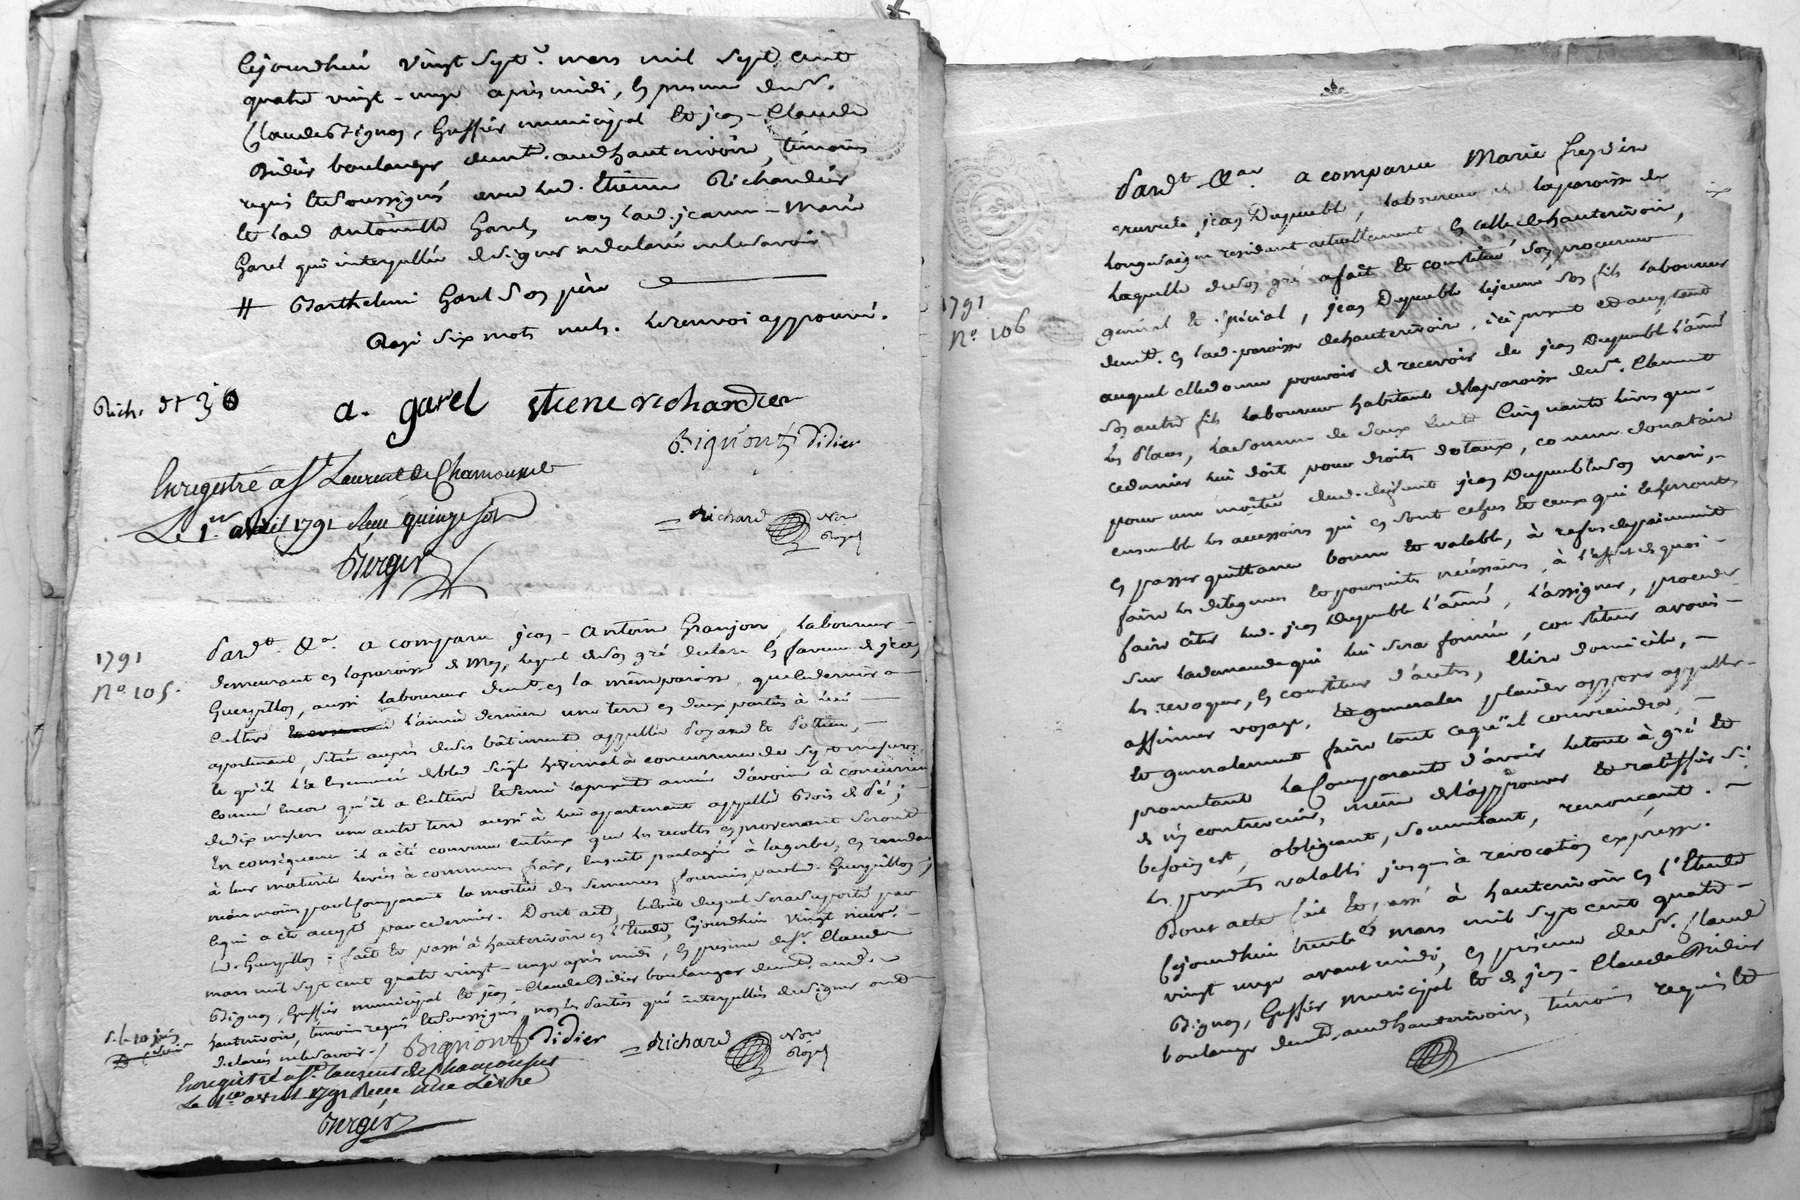 Cejourdhui vingt sept mars mil sept cent
quatre vingt-onze après midi, En presence de sr.
Claude Bignon, Greffier municipal Et jean-Claude
Didier boulanger demt. aud hauterivoire, témoins
requis Et soussignés avec led. Etienne Richardier
Et lad antoinette Garel, non lad. jeanne-Marie
Garel qui interpellée de signer a declaré ne le savoir
# Barthelemi Garel son père
Rayé six mots nuls. Le renvoi approuvé.
a. garel etiene richardier
Bignon Didier
Enregistré a St Laurent de Chamousset
Le 1er avril 1791 Reçu quinze sols
Richard Nore Royal
Berger
1791
No. 105.
Pardt. &a a comparu jean-Antoine Granjon, Laboureur
demeurant en la paroisse de Mey, lequel de son gré declare En faveur de jean
Guerpillon, aussi laboureur demt. en la même paroisse, que ce dernier a
Cultivé l'année derniere une terre en deux parties à lui
appartenant, située auprès de ses bâtiments appellée
Et qu'il l'a Ensemencée de bled seigle hivernal à concurrence de sept mesures,
comme Encore qu'il a Cultivé Et semé la presente année d'avoine à concurrence
de dix mesures une autre terre aussi à lui appartenant appellée Bois de
En conséquence il a été convenu entr'eux que les recoltes en provenant seront
à leur maturité levées à communs frais, Ensuite partagées à la gerbe, en rendant
néanmoins par le Comparant la moitié des semences fournies par led. Guerpillon,
ce qui a été accepté par ce dernier. Dont acte, le coût duquel sera supporté par
led. Guerpillon; fait Et passé à hauterivoire en l'Etude, Cejourdhui vingt neuf
mars mil sept cent quatre vingt-onze après midi, En presence de sr. Claude
Bignon, Greffier municipal Et jean-Claude Didier boulanger demt. aud.
hauterivoire, temoins requis Et soussignés, non les Parties qui interpellées de signer ont
declaré ne le savoir./. Bignon Didier Richard Nore Royal
Enregistré a St. laurent de chamousset
Le 1er avril 1791 Reçu une Livre
Berger
1791
No. 106
Pardt &a a comparu Marie
veuve de jean Dupeuble, laboureur de la paroisse de
Longesaigne residant actuellement En celle de hauterivoire,
Laquelle de son gré a fait Et constitué son procureur
général Et spécial, jean Dupeuble le jeune son fils laboureur
demt. en lad. paroisse de hauterivoire, ici present Et acceptant
auquel elle donne pouvoir de recevoir de jean Dupeuble l'ainé
son autre fils laboureur habitant de la paroisse de St. Clement
les Places, la somme de deux cents Cinquante livres que
ce dernier lui doit pour droits dotaux, comme donataire
pour une moitié dud. défunt jean Dupeuble son mari,
ensemble les accessoires qui en sont echus Et ceux qui echerront,
En passer quittance bonne Et valable, à refus de paiement
faire les diligences Et poursuites nécessaires, à l'effet de quoi
faire citer led. jean Dupeuble l'ainé, l'assigner, proceder
sur la demande qui lui sera formée, constituer avoué
les revoquer, En constituer d'autres, Elire domicile,
affirmer voyage, plaider opposer appeller
Et generalement faire tout ce qu'il conviendra,
promettant la Comparante d'avoir le tout à gré Et
de n'y contrevenir, même de l'approuver Et ratiffier si
besoin est, obligeant, soumettant, renonçant.
les presentes valables jusqu'à révocation expresse.
Dont acte fait Et passé à hauterivoire En l'Etude
Cejourdhui trente mars mil sept cent quatre
vingt onze avant midi, En présence de sr. Claude
Bignon, Greffier municipal Et de jean-Claude Didier
boulanger demt. aud hauterivoire, témoins requis Et